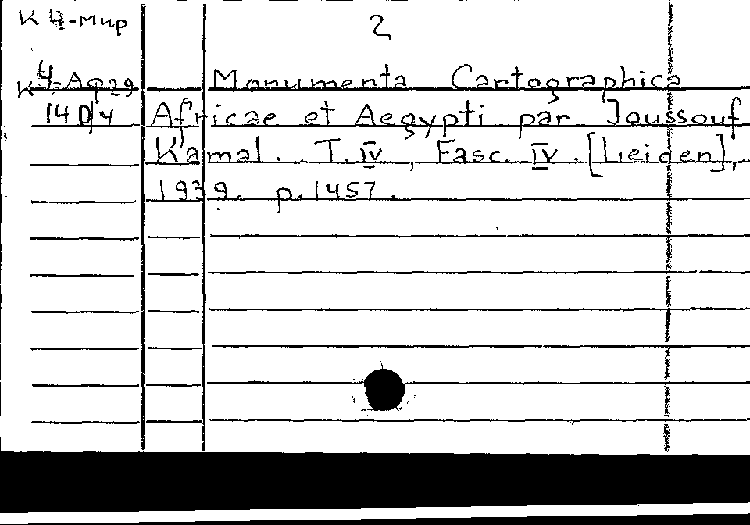 К 4-Мир
2
К 4-Афр29
14 D/4
Monumenta Cartographica
Africae et Aegypti par Joussouf
Kamal. T. IV, Fasc. IV. [Leiden],
1939. p. 1457.